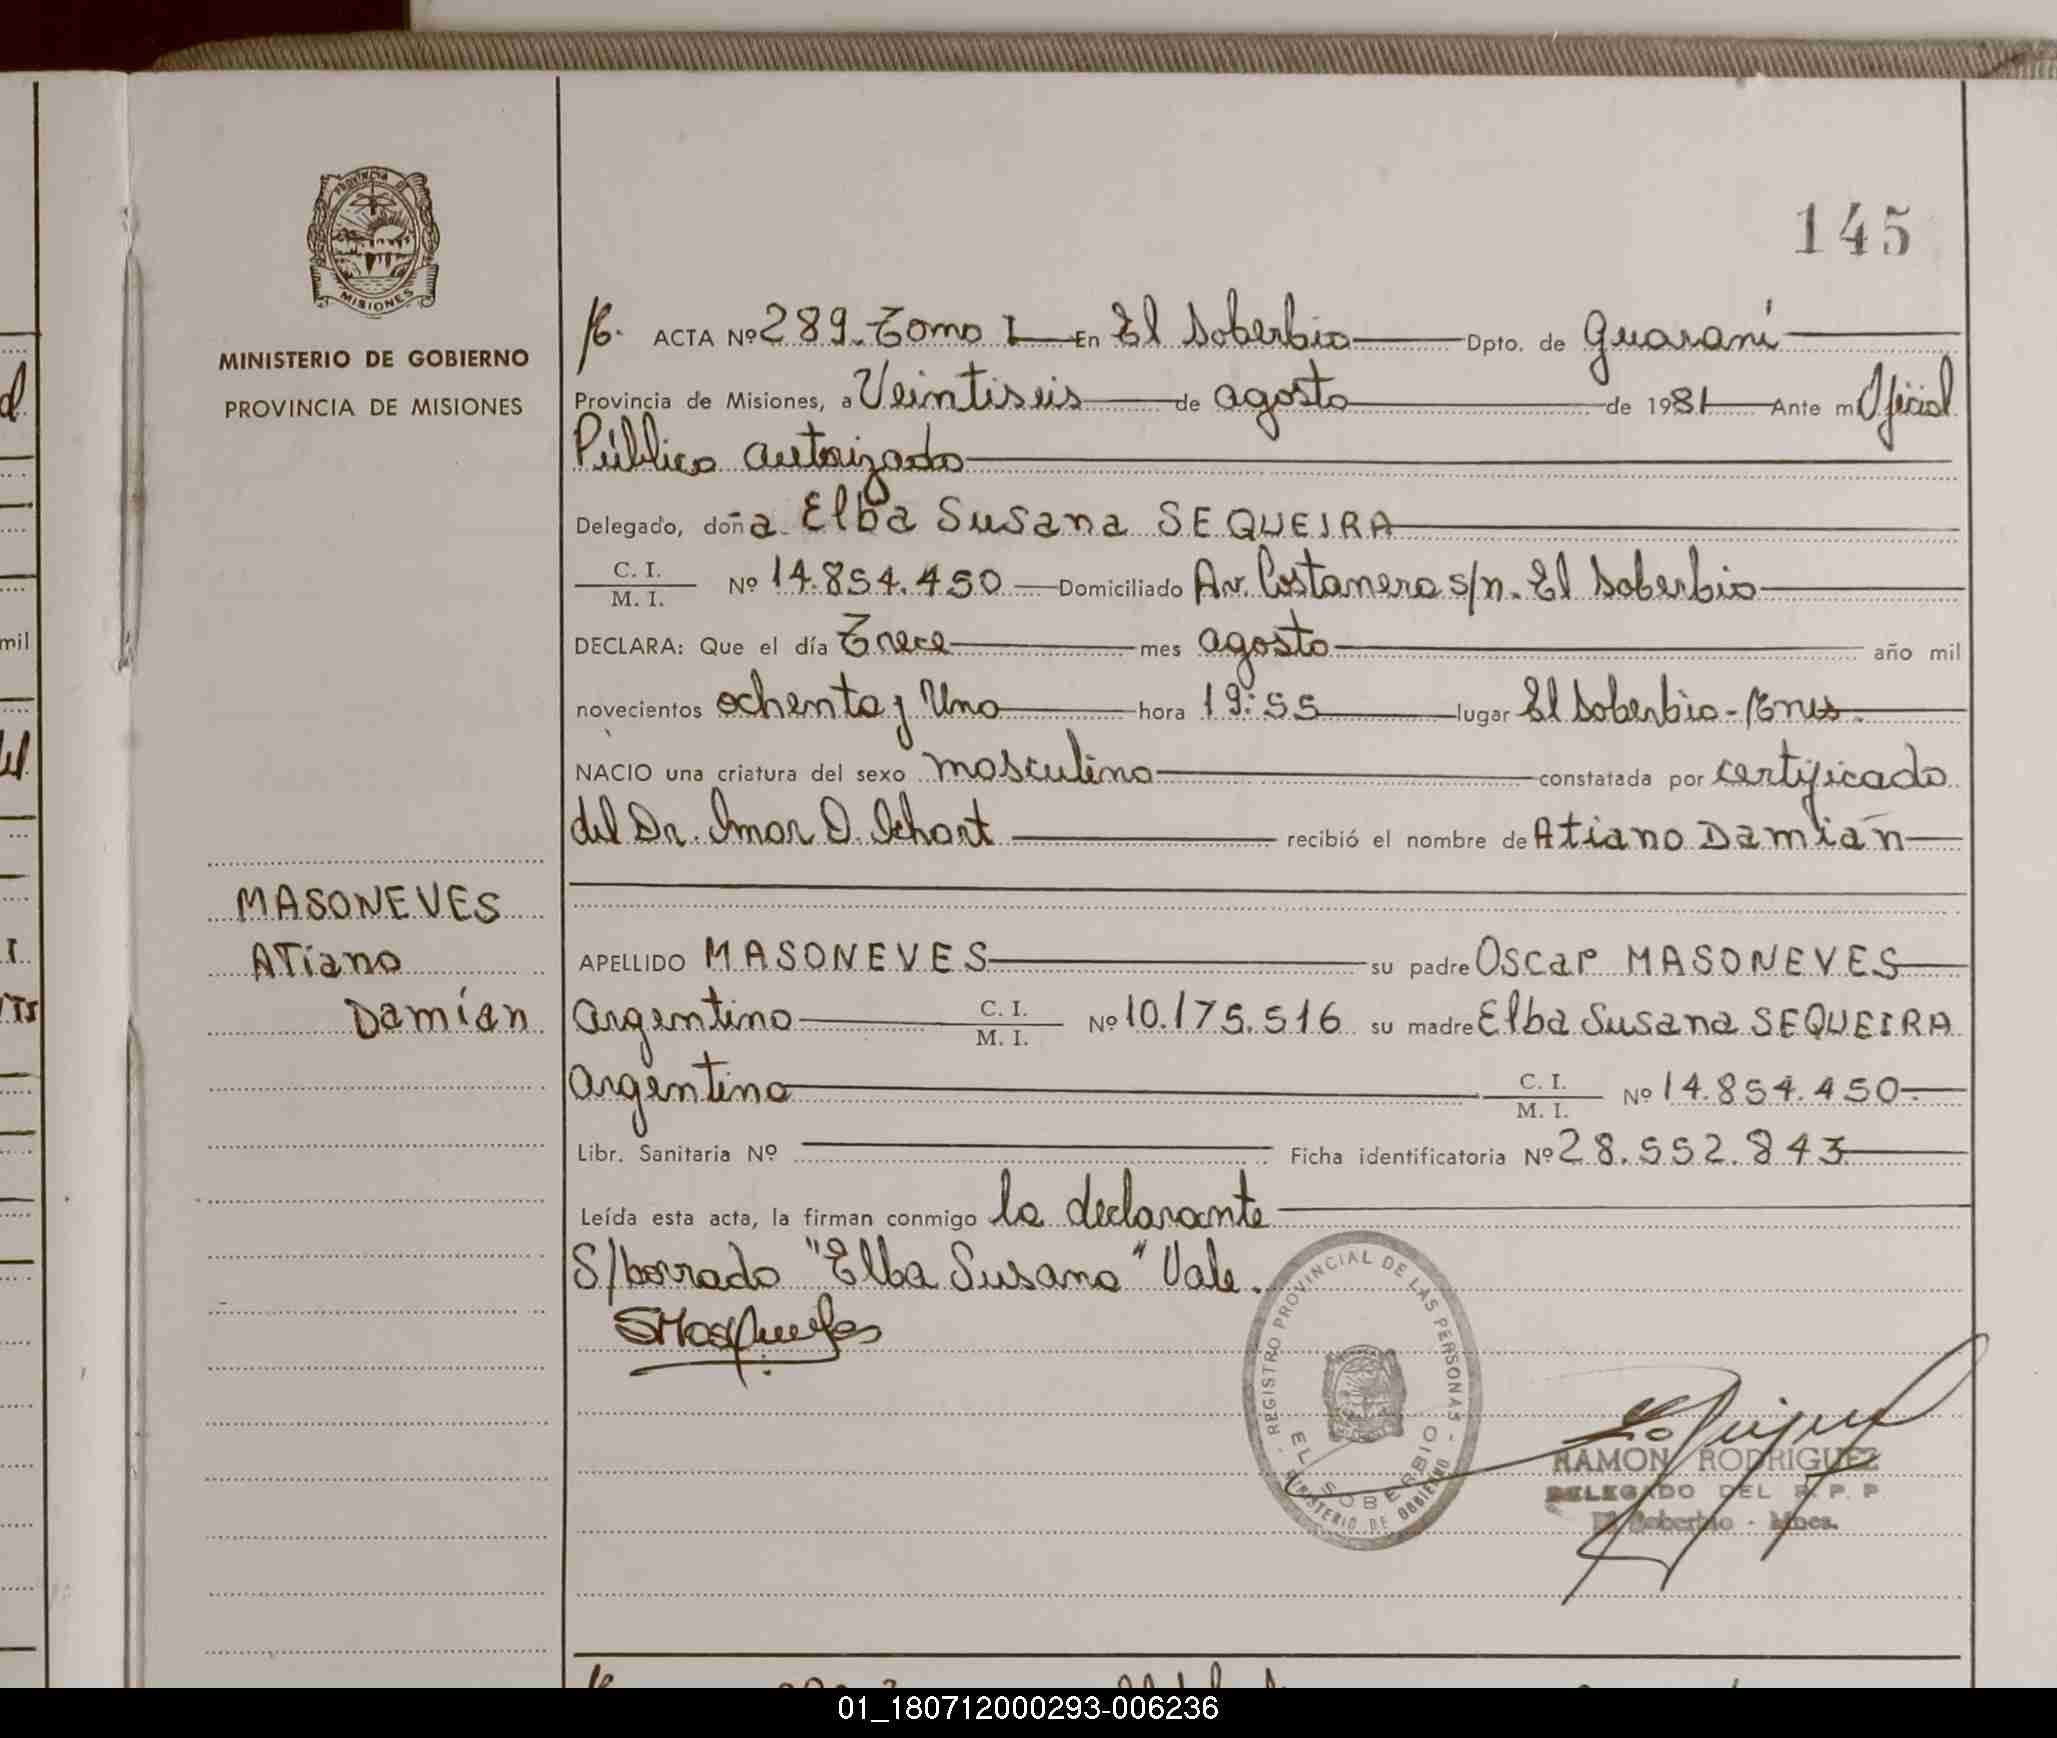 PROVINCIA DE
MISIONES
MINISTERIO DE GOBIERNO
PROVINCIA DE MISIONES
MASONEVES
ATiano
Damián
145
ACTA Nº 289. Tomo I En El Soberbio Dpto. de Guaraní
Provincia de Misiones, a Veintiseis de agosto de 1981 Ante mi Oficial
Público autorizado
Delegado, doña Elba Susana SEQUEIRA
C. I.
M. I.
Nº 14.854.450 Domiciliado Av. Costanera s/n. El Soberbio
DECLARA: Que el día Trece mes agosto año mil
novecientos ochenta y Uno hora 19:55 lugar El Soberbio-
NACIO una criatura del sexo masculino constatada por certificado
del Dr. Imar O. Ichart recibió el nombre de Atiano Damián
APELLIDO MASONEVES su padre Oscar MASONEVES
argentino C. I. M. I. Nº 10.175.516 su madre Elba Susana SEQUEIRA
argentina C. I. M. I. Nº 14.854.450
Libr. Sanitaria Nº Ficha identificatoria Nº 28.552.843
Leída esta acta, la firman conmigo la declarante
S/borrado "Elba Susana" Vale.
REGISTRO PROVINCIAL DE LAS PERSONAS
EL SOBERBIO
MINISTERIO DE GOBIERNO
RAMON RODRIGUEZ
DELEGADO DEL R. P. P
El Soberbio - Mnes.
mil
01_180712000293-006236